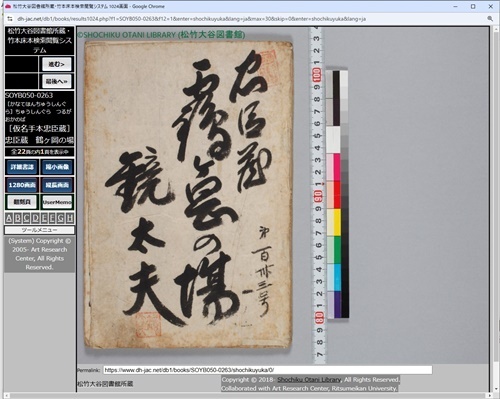 松竹大谷図書館所蔵・竹本床本検索閲覧システム 1024画面 - Google Chrome
dh-jac.net/db1/books/results1024.php?f1=SOYB050-0263&f12=1&enter=shochikuyuka&lang=ja&max=30&skip=0&enter=shochikuyuka&lang=ja
松竹大谷図書館所蔵・
竹本床本検索閲覧シス
テム
進む>
最後へ»
SOYB050-0263
(かなてほんちゅうしんぐ
ら) ちゅうしんぐら つるが
おかのば
[仮名手本忠臣蔵]
忠臣蔵 鶴ヶ岡の場
全22頁の内1頁を表示中
詳細書誌
縮小画像
1280画面
縦長画面
翻刻頁
UserMemo
A B C D E F G H
ツールメニュー
(System) Copyright ©
2005- Art Research
Center, All Rights
Reserved.
©SHOCHIKU OTANI LIBRARY (松竹大谷図書館)
忠臣蔵
鶴ヶ岡の場
鏡太夫
第百卅三号
Permalink: https://www.dh-jac.net/db1/books/SOYB050-0263/shochikuyuka/0/
松竹大谷図書館所蔵
Copyright © 2018- Shochiku Otani Library, All Rights Reserved.
Collaborated with Art Research Center, Ritsumeikan University.